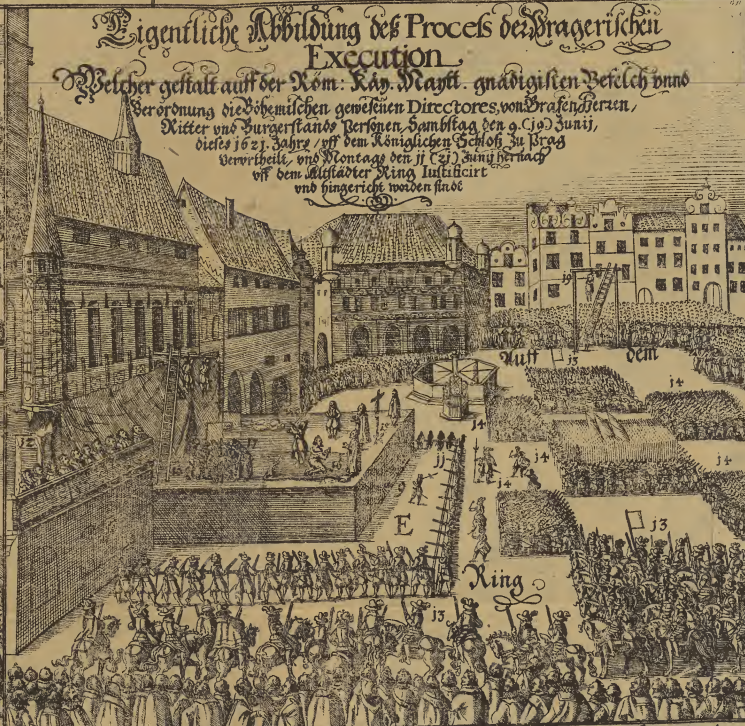 Eigentliche Abbildung deß Process der Pragerischen
Execution
Welcher gestalt auff der Röm: Käy. Maytt. gnädigisten Befelch vnnd
Verordnung die Böhemischen gewesenen Directores, von Grafen, Herren,
Ritter vnd Burgerstands Personen, Sambstag den 9. (19) Junij,
dieses 1621. Jahrs / vff dem Königlichen Schloß zu Prag
Verurtheilt, vnd Montags den jj (2j) Junij hernach
vff dem Altstädter Ring Iustificirt
vnd hingericht worden sindt
j9
Auff j3 dem
j4
j4
jj j4 j4
j4
E
j3
Ring
j3